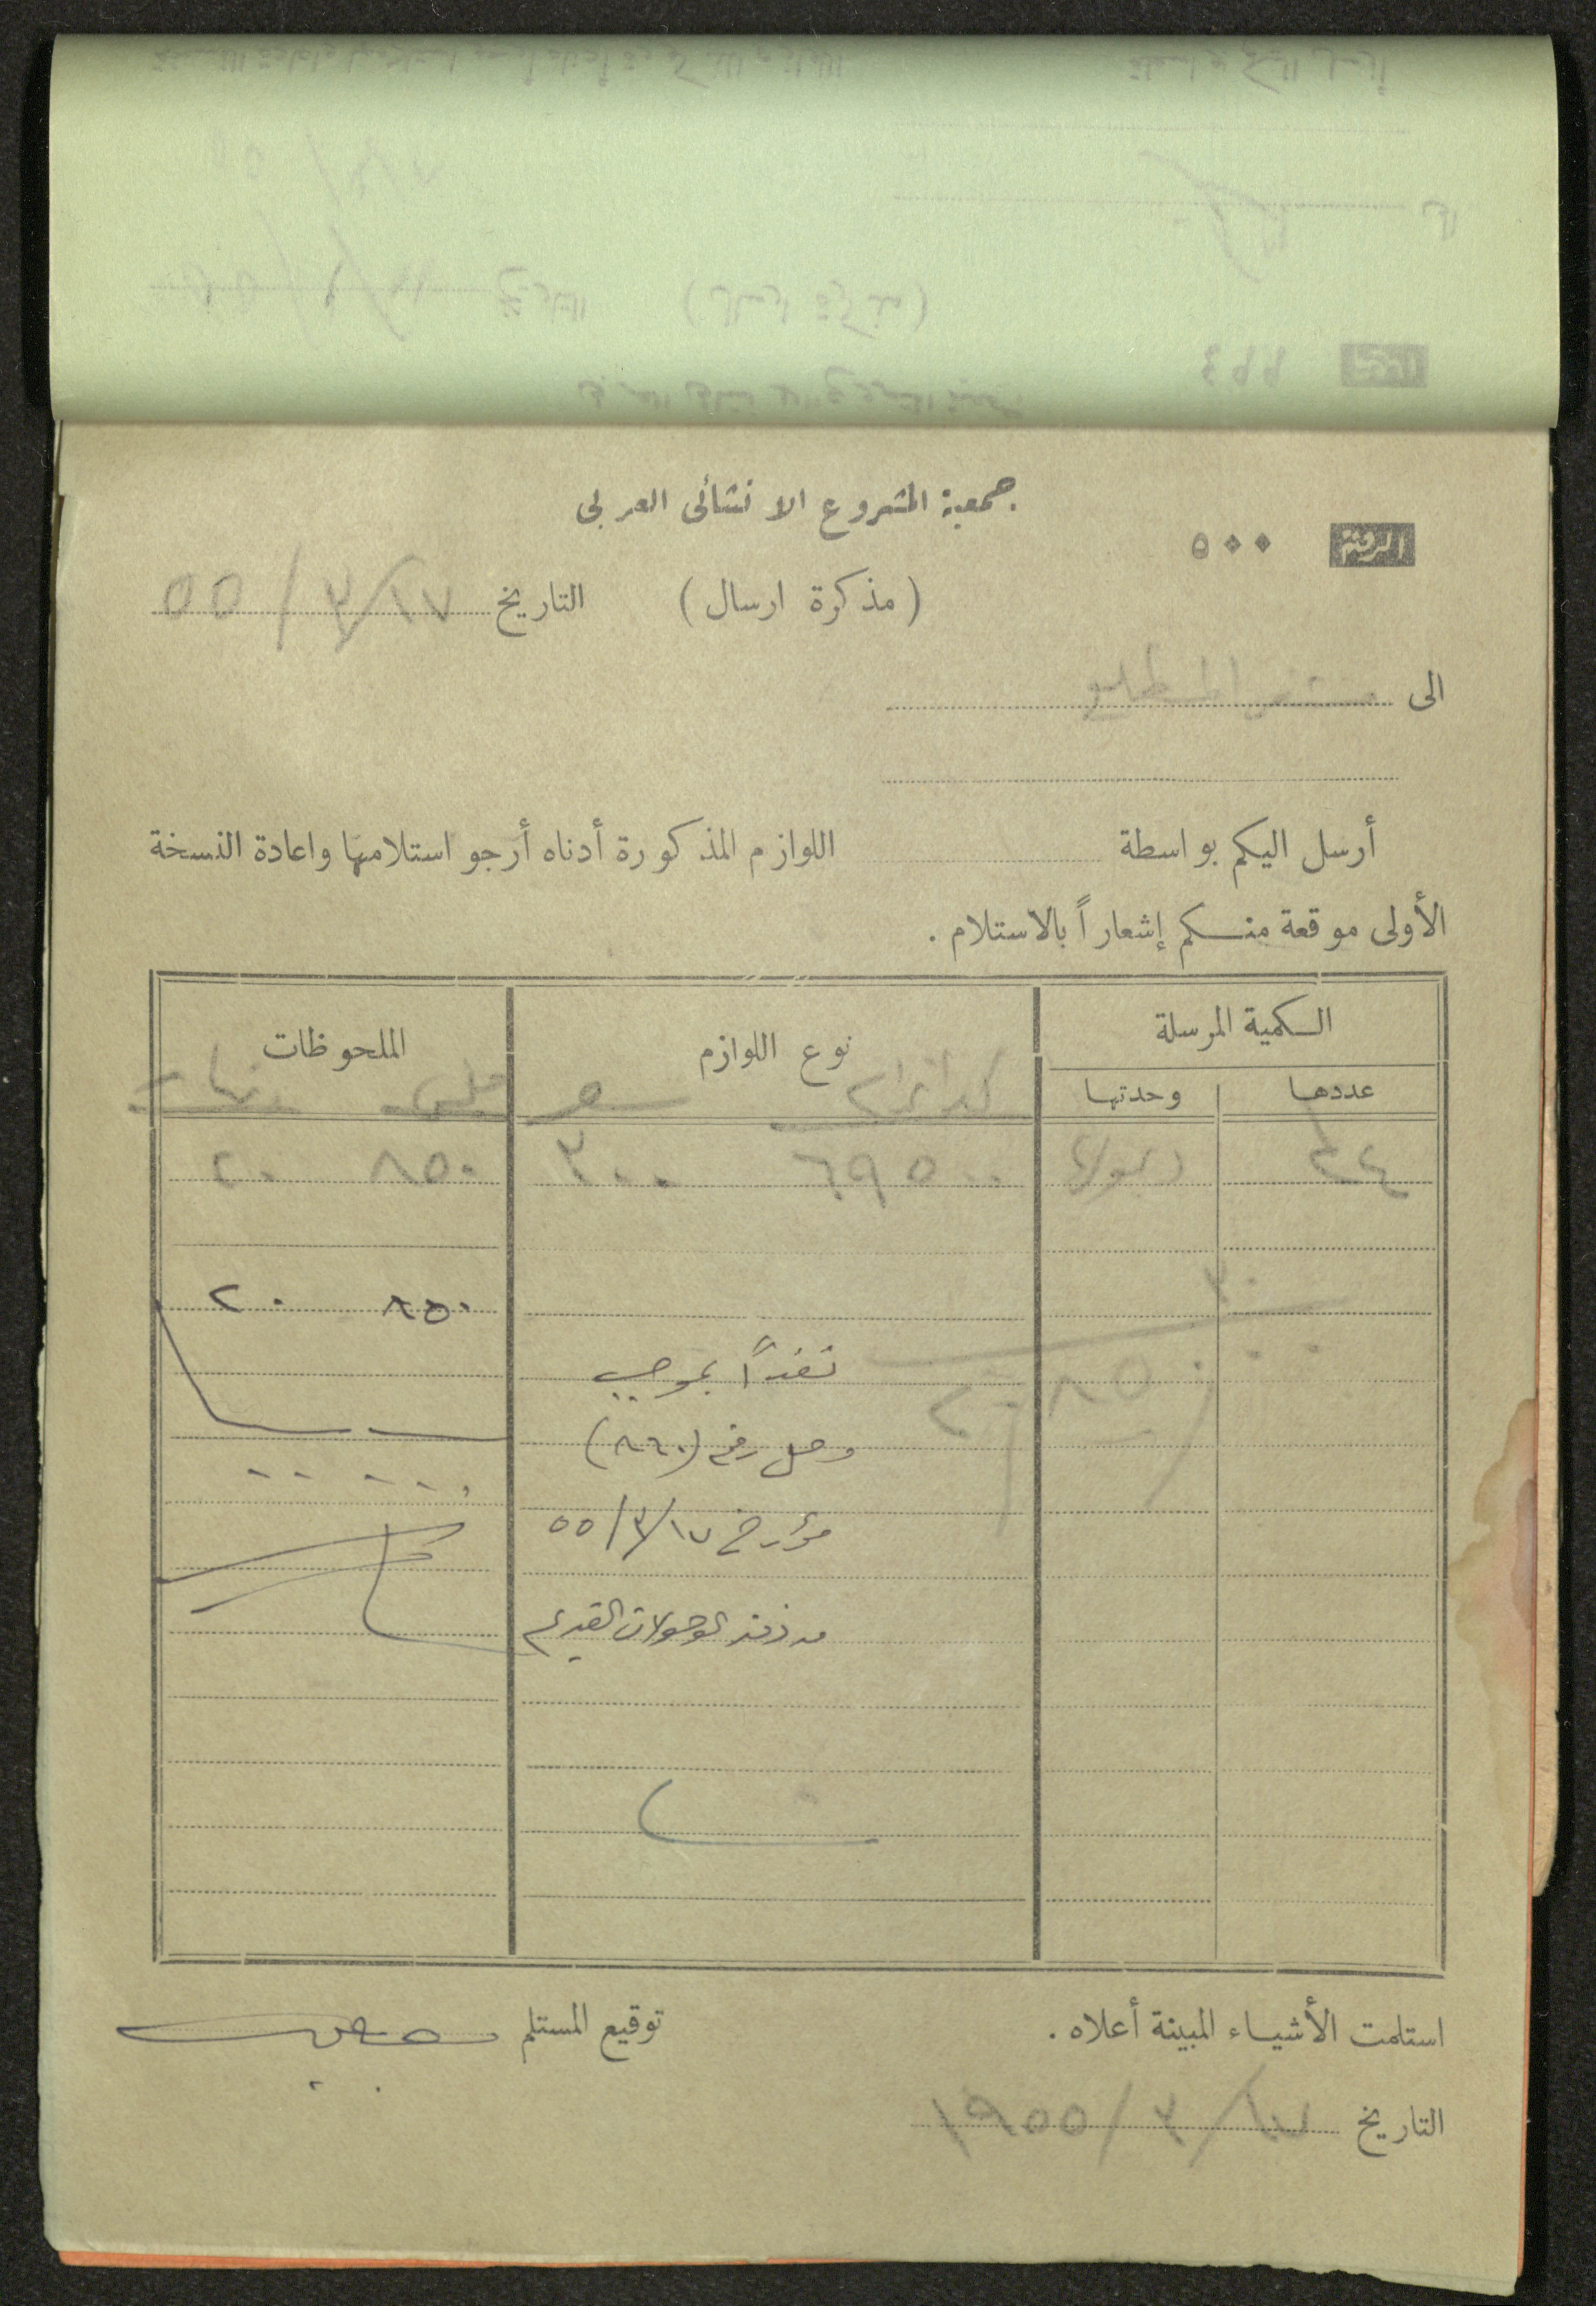 جمعية المشروع الانشائى العربى
الرقم ٥٠٠
(مذكرة ارسال) التاريخ ١٧/٣/٥٥
الى
أرسل اليكم بواسطة اللوازم المذكورة أدناه أرجو استلامها واعادة النسخة
الأولى موقعة منكم إشعاراً بالاستلام .
الكمية المرسلة نوع اللوازم الملحوظات
عددها وحدتها
٦٩٥٠٠ ٣٠٠ ٨٥٠ ٢٠
٨٥٠ ٢٠
نقداً بموجب
وصل رقم (٨٦٠)
مؤرخ ١٧/٣/٥٥
من دفتر الوصولات القديم
استلمت الأشياء المبينة أعلاه . توقيع المستلم
التاريخ ١٧/٣/١٩٥٥